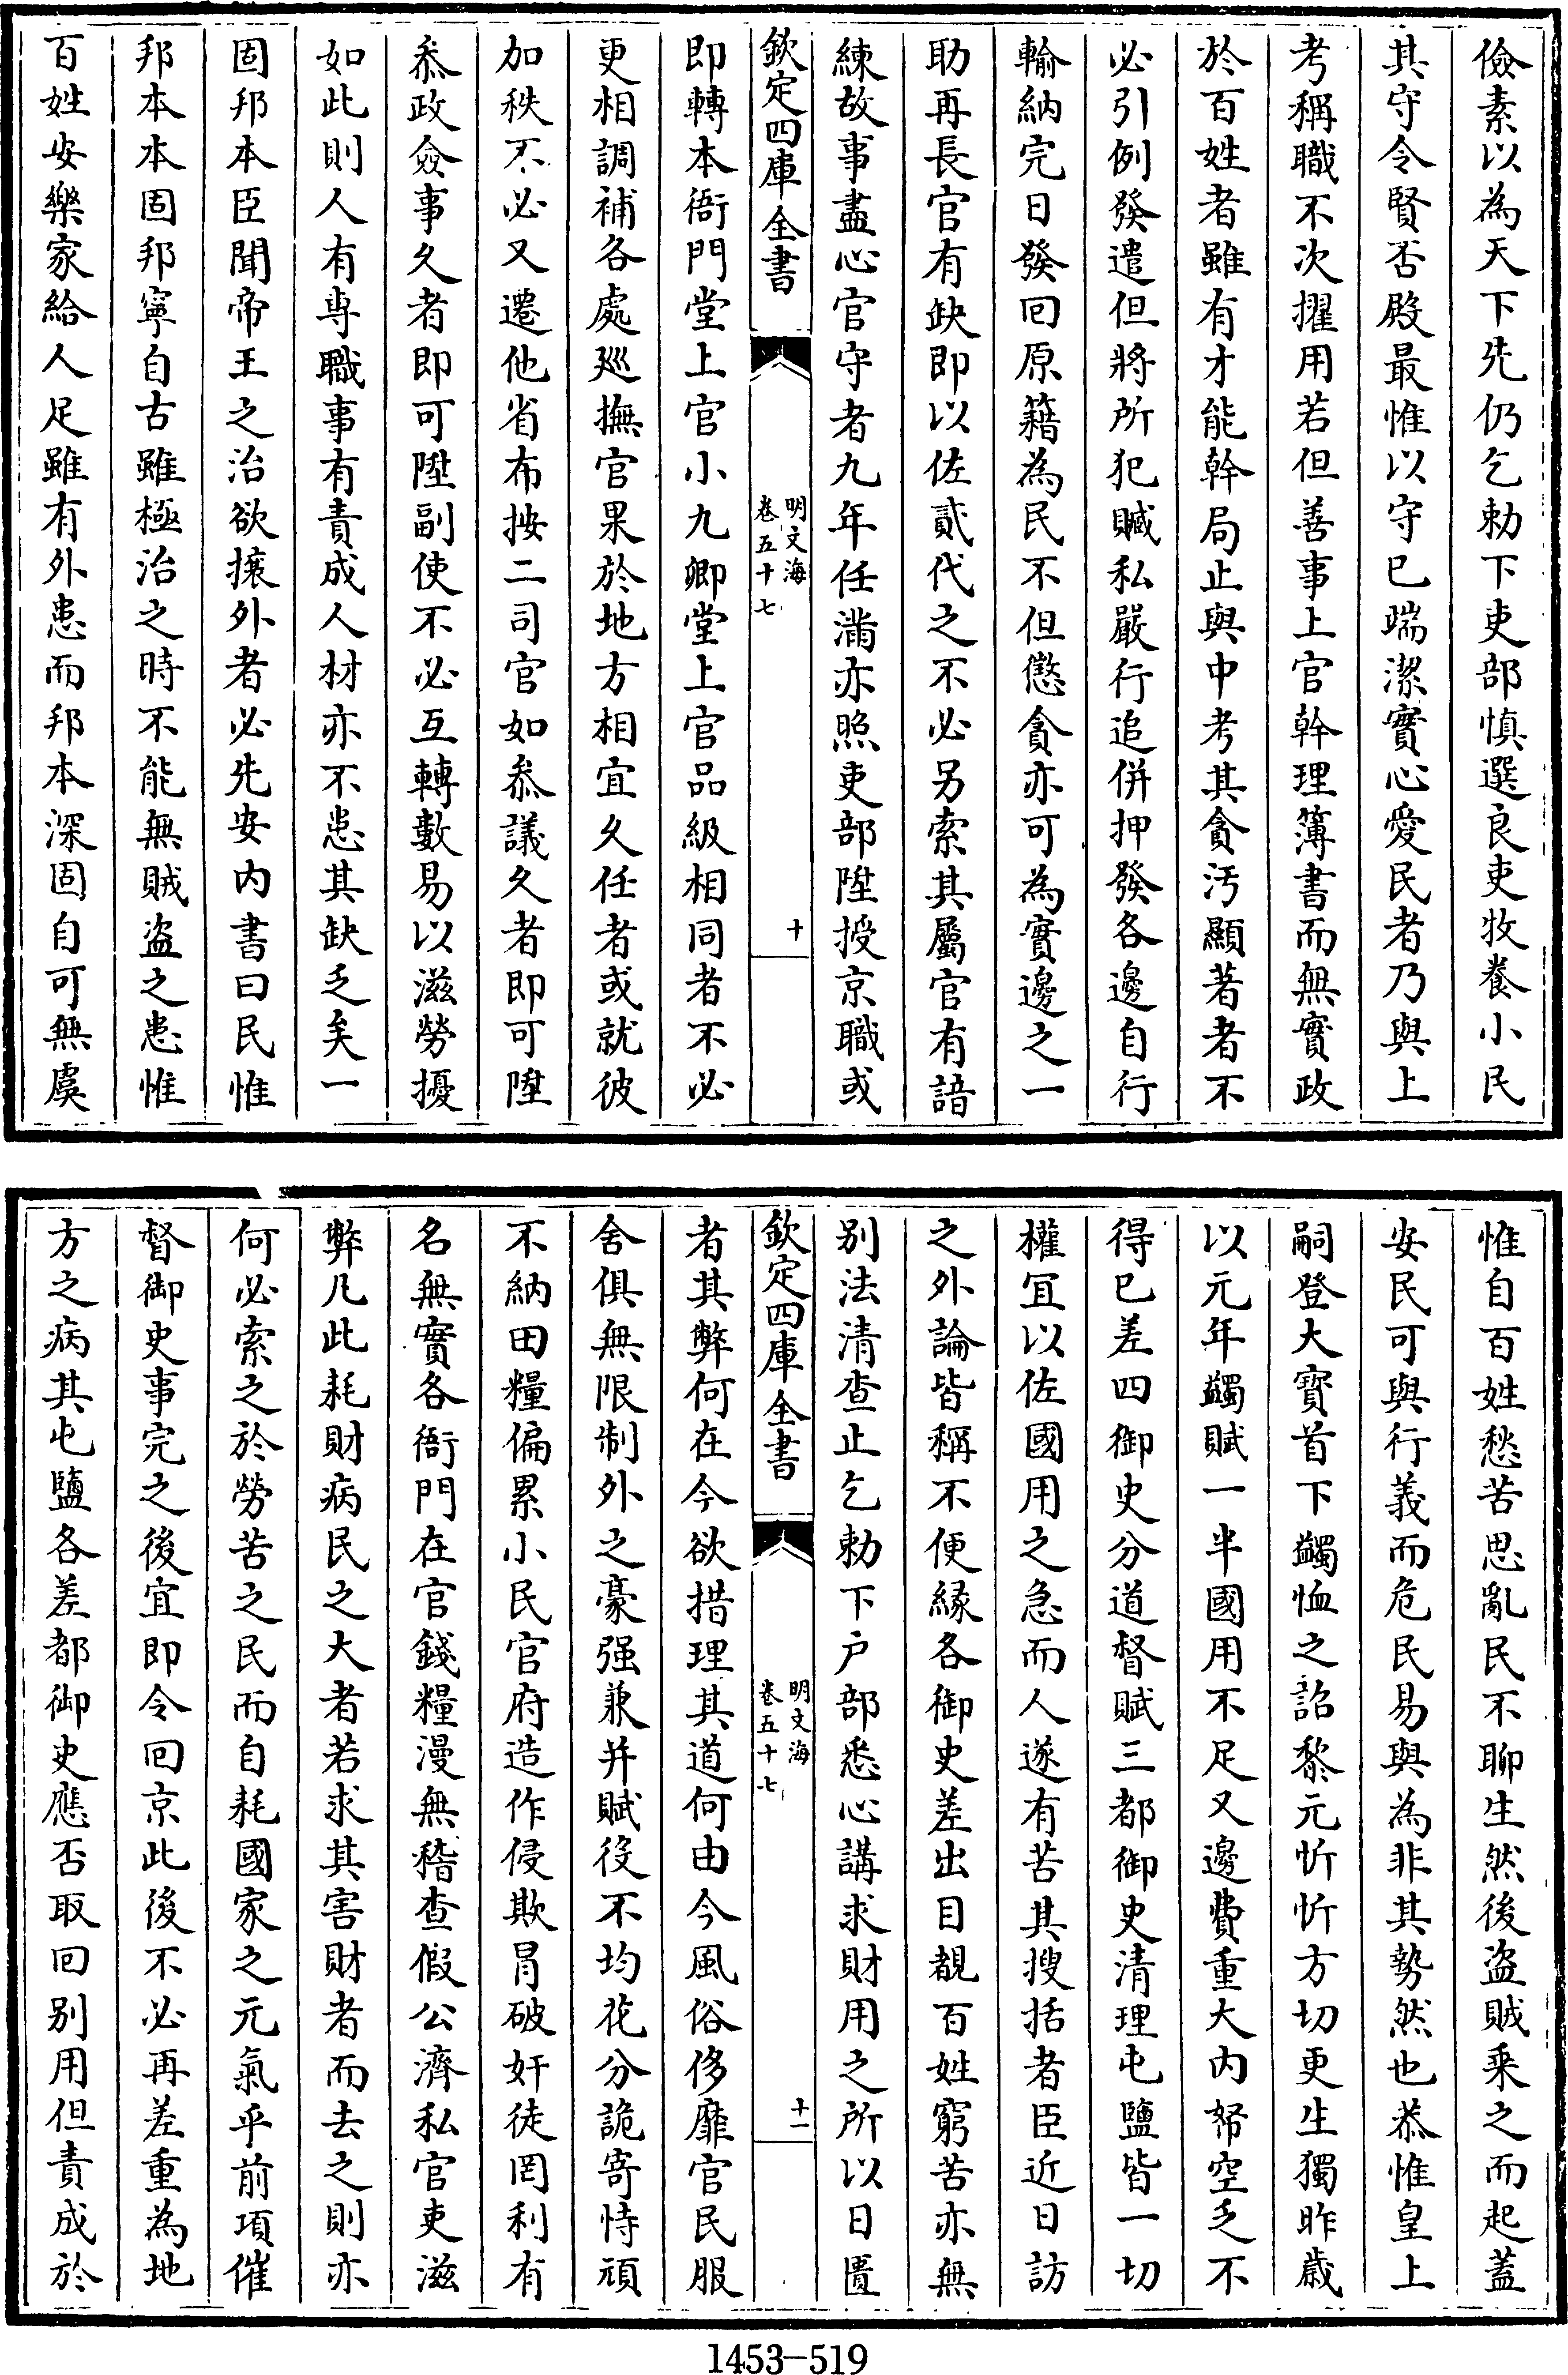 儉素以為天下先仍乞勅下吏部慎選良吏牧養小民
其守令賢否殿最惟以守已端潔實心愛民者乃與上
考稱職不次擢用若但善事上官幹理簿書而無實政
於百姓者雖有才能幹局止與中考其貪污顯著者不
必引例發遣但將所犯贓私嚴行追併押發各邊自行
輸納完日發回原籍為民不但懲貪亦可為實邊之一
助再長官有缺即以佐貳代之不必另索其屬官有諳
練故事盡心官守者九年任滿亦照吏部陞授京職或
欽定四庫全書
明文海
卷五十七
十
即轉本衙門堂上官小九卿堂上官品級相同者不必
更相調補各處廵撫官果於地方相宜久任者或就彼
加秩不必又遷他省布按二司官如叅議久者即可陞
叅政僉事久者即可陞副使不必互轉數易以滋勞擾
如此則人有專職事有責成人材亦不患其缺乏矣一
固邦本臣聞帝王之治欲攘外者必先安内書曰民惟
邦本本固邦寧自古雖極治之時不能無賊盗之患惟
百姓安樂家給人足雖有外患而邦本深固自可無虞
惟自百姓愁苦思亂民不聊生然後盗賊乘之而起蓋
安民可與行義而危民易與為非其勢然也恭惟皇上
嗣登大寶首下蠲恤之詔黎元忻忻方切更生獨昨歳
以元年蠲賦一半國用不足又邊費重大内帑空乏不
得已差四御史分道督賦三都御史清理屯鹽皆一切
權宜以佐國用之急而人遂有苦其搜括者臣近日訪
之外論皆稱不便緣各御史差出目覩百姓窮苦亦無
别法清查止乞勅下户部悉心講求財用之所以日匱
欽定四庫全書
明文海
卷五十七
十一
者其弊何在今欲措理其道何由今風俗侈靡官民服
舍俱無限制外之豪强兼并賦役不均花分詭寄恃頑
不納田糧偏累小民官府造作侵欺冒破奸徒罔利有
名無實各衙門在官錢糧漫無稽查假公濟私官吏滋
弊凡此耗財病民之大者若求其害財者而去之則亦
何必索之於勞苦之民而自耗國家之元氣乎前項催
督御史事完之後宜即令回京此後不必再差重為地
方之病其屯鹽各差都御史應否取回别用但責成於
1453-519